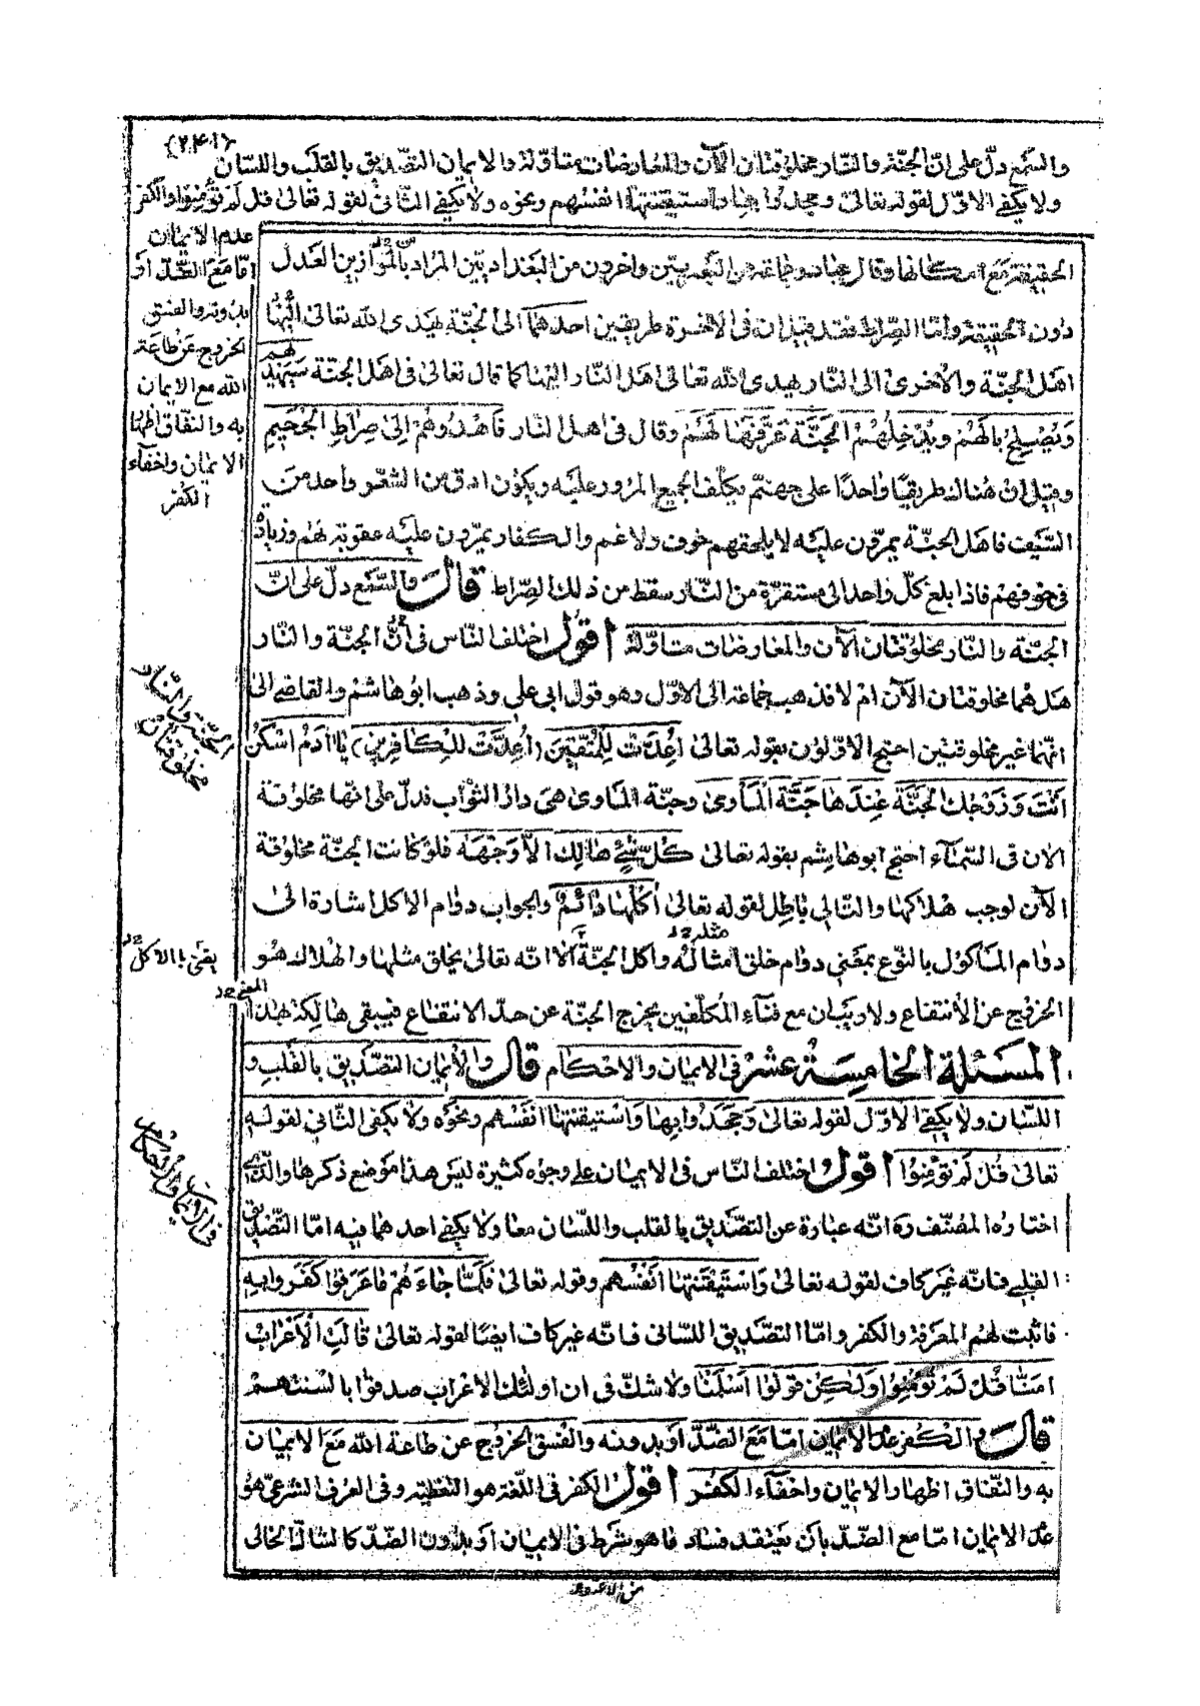 (٢٤١)
والسّمع دلّ على انّ الجنّة والنّار مخلوقتان الآن والمعارضات متاوّلة والايمان التصّديق بالقلب واللسّان
ولا يكفى الاوّل لقوله تعالى وجحدوا بها واستيقنتها انفسهم ونحوه ولا يكفى الثّانى لقوله تعالى قل لم تؤمنوا والكفر
عدم الايمان
امّا مع الضّدّ او
بدونه والفسق
الخروج عن طاعة
الله مع الايمان
به والنّفاق اظهار
الايمان واخفاء
الكفر
الحقيقة مع امكانها وقال عبّاد وجماعة من البصريّين واخرون من البغداديّين المراد بالموازين العدل
دون الحقيقة وامّا الصّراط فقد قيل ان فى الاخرة طريقين احدهما الى الجنّة يهدى الله تعالى اليها
اهل الجنّة والاخرى الى النّار يهدى الله تعالى اهل النّار اليها كما قال تعالى فى اهل الجنّة سيهديهم
ويصلح بالهم ويدخلهم الجنّة عرّفها لهم وقال فى اهل النّار فاهدوهم إلى صراط الجحيم
وقيل انّ هناك طريقًا واحدًا على جهنّم يكلّف الجميع المرور عليه ويكون ادق من الشّعر واحد من
السّيف فاهل الجنّة يمرّون عليه لا يلحقهم خوف ولا غم والكفار يمرّون عليه عقوبة لهم وزيادة
فى خوفهم فاذا بلغ كلّ واحد الى مستقرّه من النّار سقط من ذلك الصّراط قال والسّمع دلّ على انّ
الجنّة والنّار مخلوقتان الآن والمعارضات متاوّلة اقول اختلف النّاس فى أنّ الجنّة والنّار
هل هما مخلوقتان الآن ام لا فذهب جماعة الى الاوّل وهو قول ابى على وذهب ابو هاشم والقاضى الى
انّهما غير مخلوقتين احتج الاوّلون بقوله تعالى اُعدّت للمتّقين (اُعدّت للكافرين) يا ادم اسكن
انت وزوجك الجنّة عندها جنّة المأوى وجنّة المأوى هى دار الثّواب فدلّ على انّها مخلوقة
الان فى السّمآء احتج ابو هاشم بقوله تعالى كلّ شىء هالك الاّ وجهه فلو كانت الجنّة مخلوقة
الآن لوجب هلاكها والتّالى باطل لقوله تعالى اُكلها دائم والجواب دوام الاكل اشارة الى
دوام المأكول بالنّوع بمعنى دوام خلق امثاله واكل الجنّة الا انّه تعالى يخلق مثلها والهلاك هو
الخروج عن الأنتفاع ولا ريب ان مع فنآء المكلّفين يخرج الجنّة عن حدّ الانتفاع فيبقى هالكة بهذا
المعنى
الجنّة والنّار
مخلوقتان
يفنى بالاكل
المسئلة الخامسة عشر فى الايمان والاحكام قال والأيمان التصّديق بالقلب و
اللسّان ولا يكفى الاوّل لقوله تعالى وجحدوا بها واستيقنتها انفسهم ونحوه ولا يكفى الثّانى لقوله
تعالى قل لم تؤمنوا اقول اختلف النّاس فى الايمان على وجوه كثيرة ليس هذا موضع ذكرها والّذى
اختاره المصنّف ره انّه عبارة عن التصّديق بالقلب واللسّان معا ولا يكفى احدهما فيه امّا التّصديق
القلبى فانّه غير كاف لقوله تعالى واستيقنتها انفسهم وقوله تعالى فلمّا جاءهم ما عرفوا كفروا به
فاثبت لهم المعرفة والكفر وامّا التصّديق اللسانى فانّه غير كاف ايضًا لقوله تعالى قالت الاعراب
امنّا قل لم تؤمنوا ولكن قولوا اسلمنا ولا شكّ فى ان اولئك الاعراب صدقوا بالسنتهم
قال والكفر عدم الايمان امّا مع الضّدّ او بدونه والفسق الخروج عن طاعة الله مع الايمان
به والنّفاق اظهار الايمان واخفاء الكفر اقول الكفر فى اللّغة هو التّغطية وفى العرف الشرعى هو
عدم الايمان امّا مع الضّدّ بأن يعتقد فساد ما هو شرط فى الايمان او بدون الضّدّ كالشاكّ الخالى